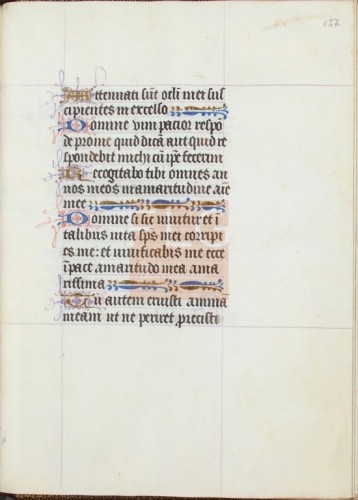 157
Attenuati sūt oclī mei sus
cipientes in excelso
Domine vim pacior respō
de pro me quid dicā aut quid re
spondebit michi cū ipē fecerim
Recogitabo tibi omnes an
nos meos in amaritudine aīe
mee
Domine si sic vivitur et ī
talibus vita spūs mei corripi
es me: et vivificabis me ecce
ī pace amaritudo mea ama
rissima
Tu autem eruisti animā
meam ut ne periret, proiecisti